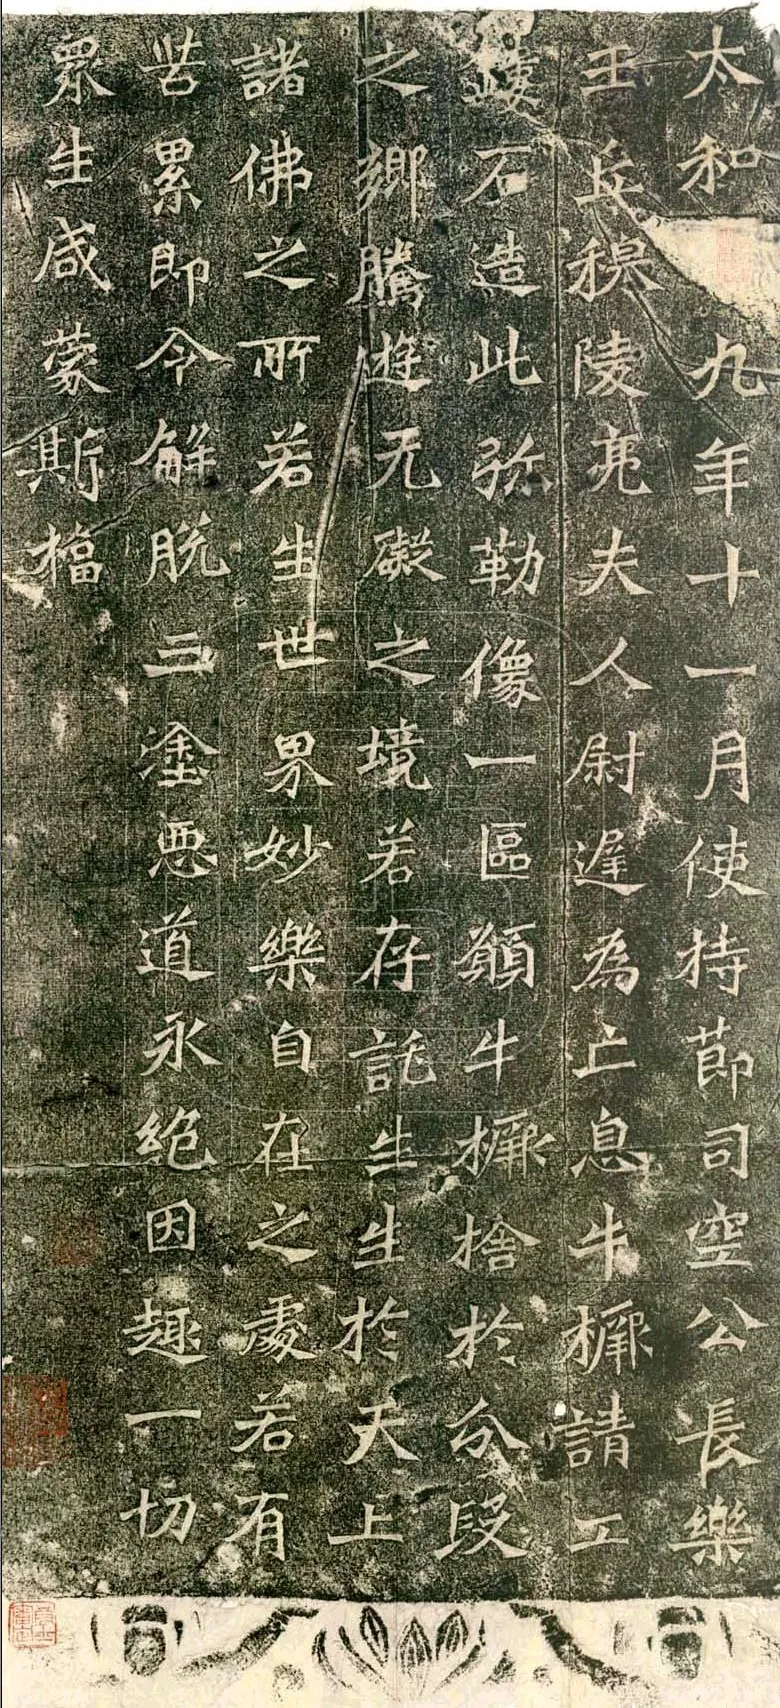 太和九年十一月使持莭司空公長樂
王丘穆陵亮夫人尉遲為亡息牛橛請工
鏤石造此弥勒像一區願牛橛捨於分段
之鄉騰遊无礙之境若存託生生於天上
諸佛之所若生世界妙樂自在之處若有
苦累即令解脫三塗惡道永絕因趣一切
眾生咸蒙斯福